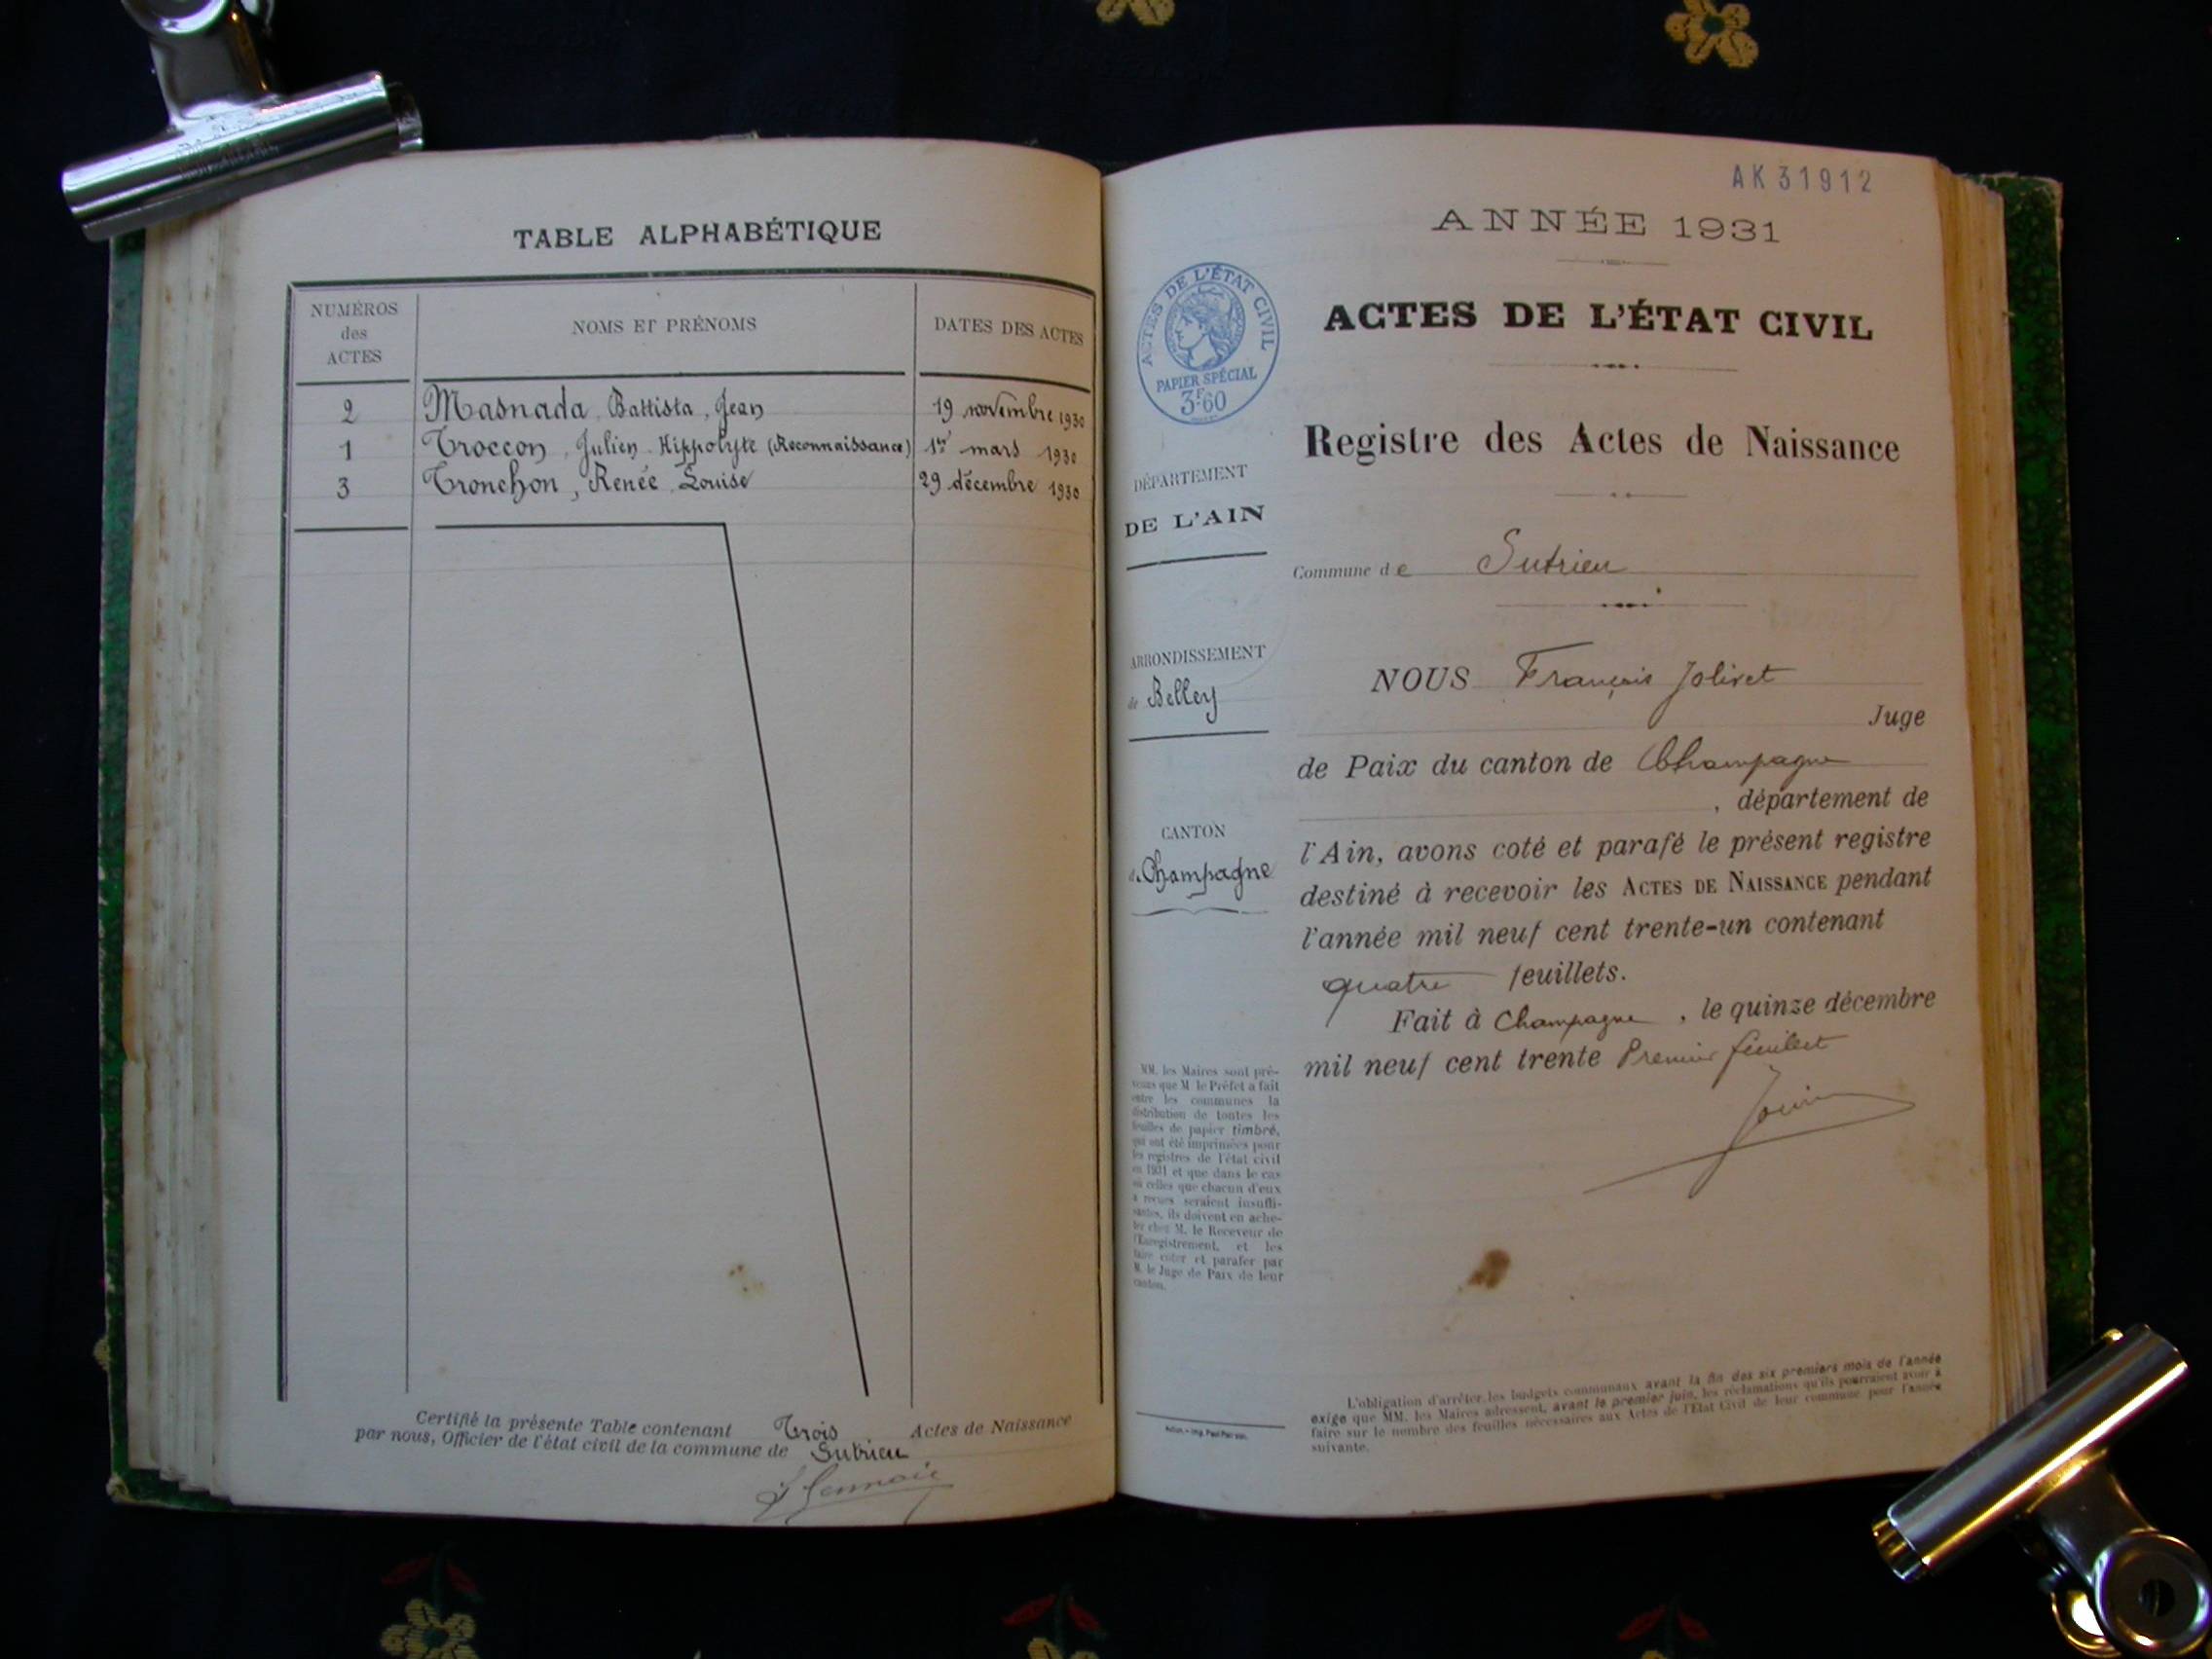 TABLE ALPHABÉTIQUE
NUMÉROS
des
ACTES
NOMS ET PRÉNOMS
DATES DES ACTES
2 Masnada, Battista, Jean 19 novembre 1930
1 Troccon, Julien Hippolyte (Reconnaissance) 1er mars 1930
3 Tronchon, Renée Louise 29 décembre 1930
Certifié la présente Table contenant Trois Actes de Naissance
par nous, Officier de l'état civil de la commune de Sutrieu
AK 31912
ANNÉE 1931
ACTES DE L'ÉTAT CIVIL
PAPIER SPÉCIAL
3F60
ACTES DE L'ÉTAT CIVIL
Registre des Actes de Naissance
DÉPARTEMENT
DE L'AIN
Commune de Sutrieu
ARRONDISSEMENT
de Belley
CANTON
de Champagne
NOUS François Jolivet
Juge
de Paix du canton de Champagne
, département de
l'Ain, avons coté et parafé le présent registre
destiné à recevoir les ACTES DE NAISSANCE pendant
l'année mil neuf cent trente-un contenant
quatre feuillets.
Fait à Champagne, le quinze décembre
mil neuf cent trente Premier feuillet
MM. les Maires sont pré-
venus que M. le Préfet a fait
entre les communes la
distribution de toutes les
feuilles de papier timbré,
qui ont été imprimées pour
les registres de l'état civil
en 1931 et que dans le cas
où celles que chacun d'eux
a reçues seraient insuffi-
santes, ils doivent en ache-
ter chez M. le Receveur de
l'Enregistrement, et les
faire coter et parafer par
M. le Juge de Paix de leur
canton.
L'obligation d'arrêter les budgets communaux avant la fin des six premiers mois de l'année
exige que MM. les Maires adressent, avant le premier juin, les réclamations qu'ils pourraient avoir à
faire sur le nombre des feuilles nécessaires aux Actes de l'Etat Civil de leur commune pour l'année
suivante.